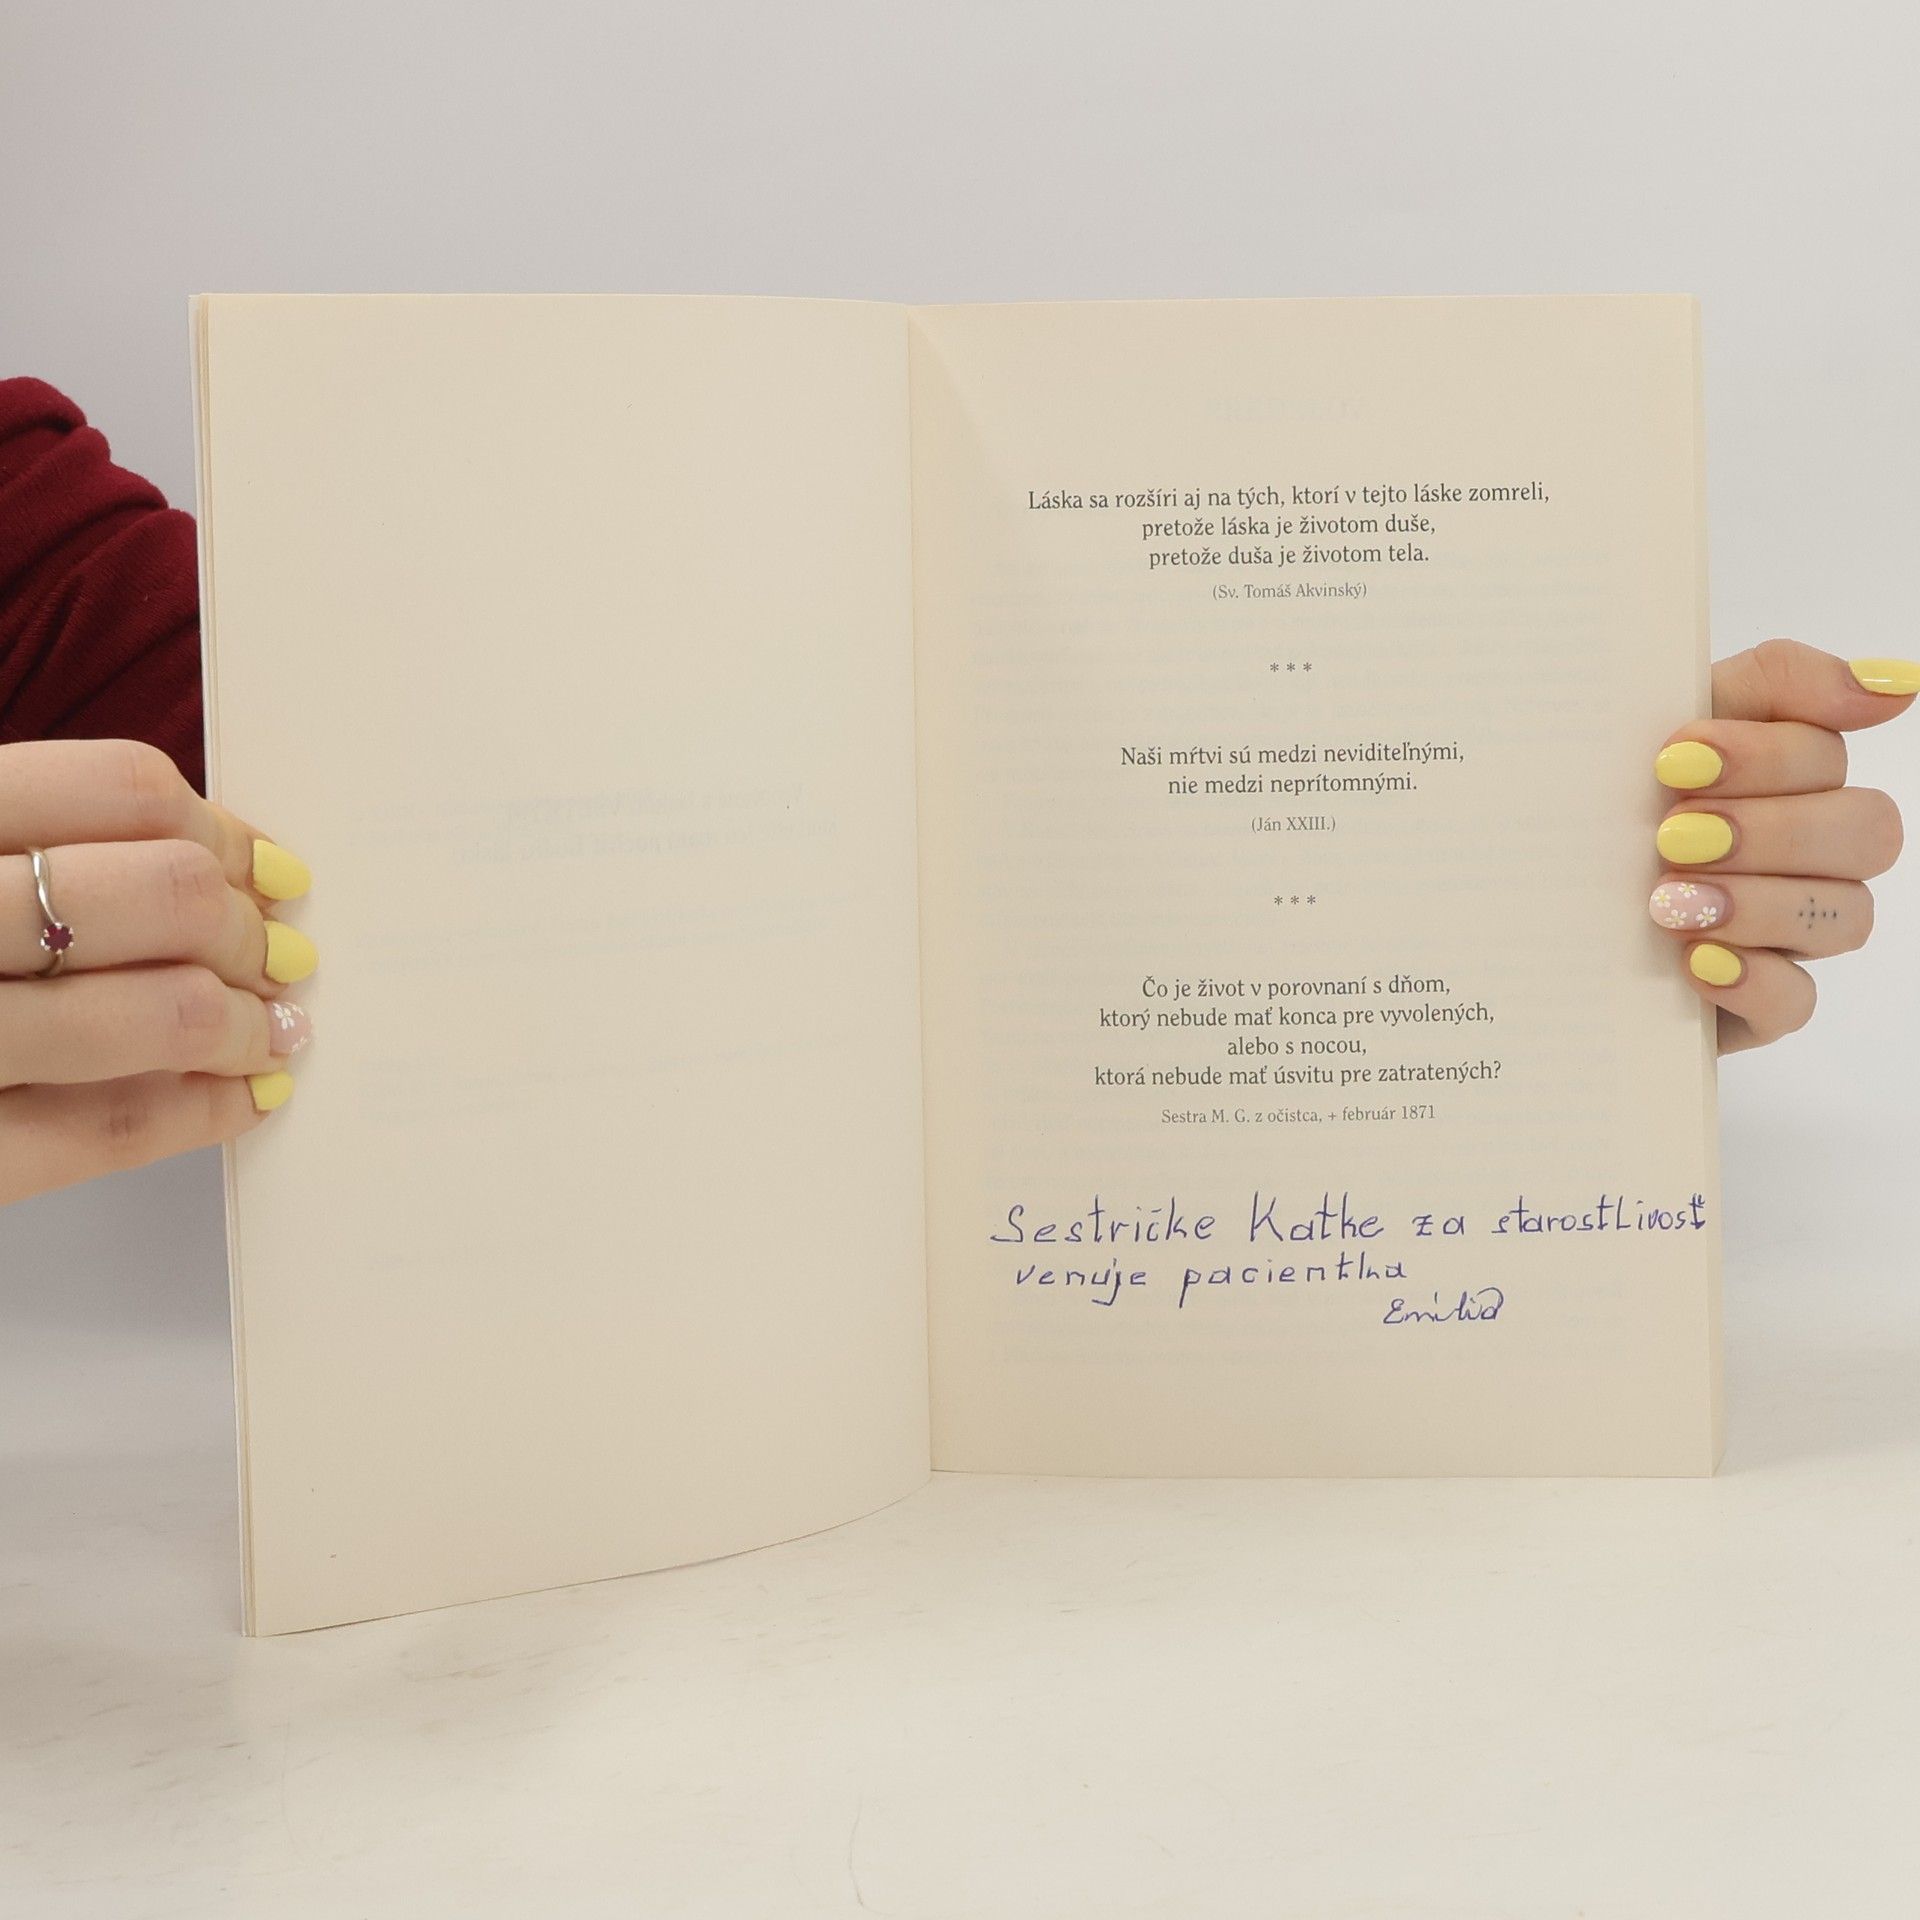 Láska sa rozšíri aj na tých, ktorí v tejto láske zomreli,
pretože láska je životom duše,
pretože duša je životom tela.
(Sv. Tomáš Akvinský)
* * *
Naši mŕtvi sú medzi neviditeľnými,
nie medzi neprítomnými.
(Ján XXIII.)
* * *
Čo je život v porovnaní s dňom,
ktorý nebude mať konca pre vyvolených,
alebo s nocou,
ktorá nebude mať úsvitu pre zatratených?
Sestra M. G. z očistca, + február 1871
Sestričke Katke za starostlivosť
venuje pacientka
Emília